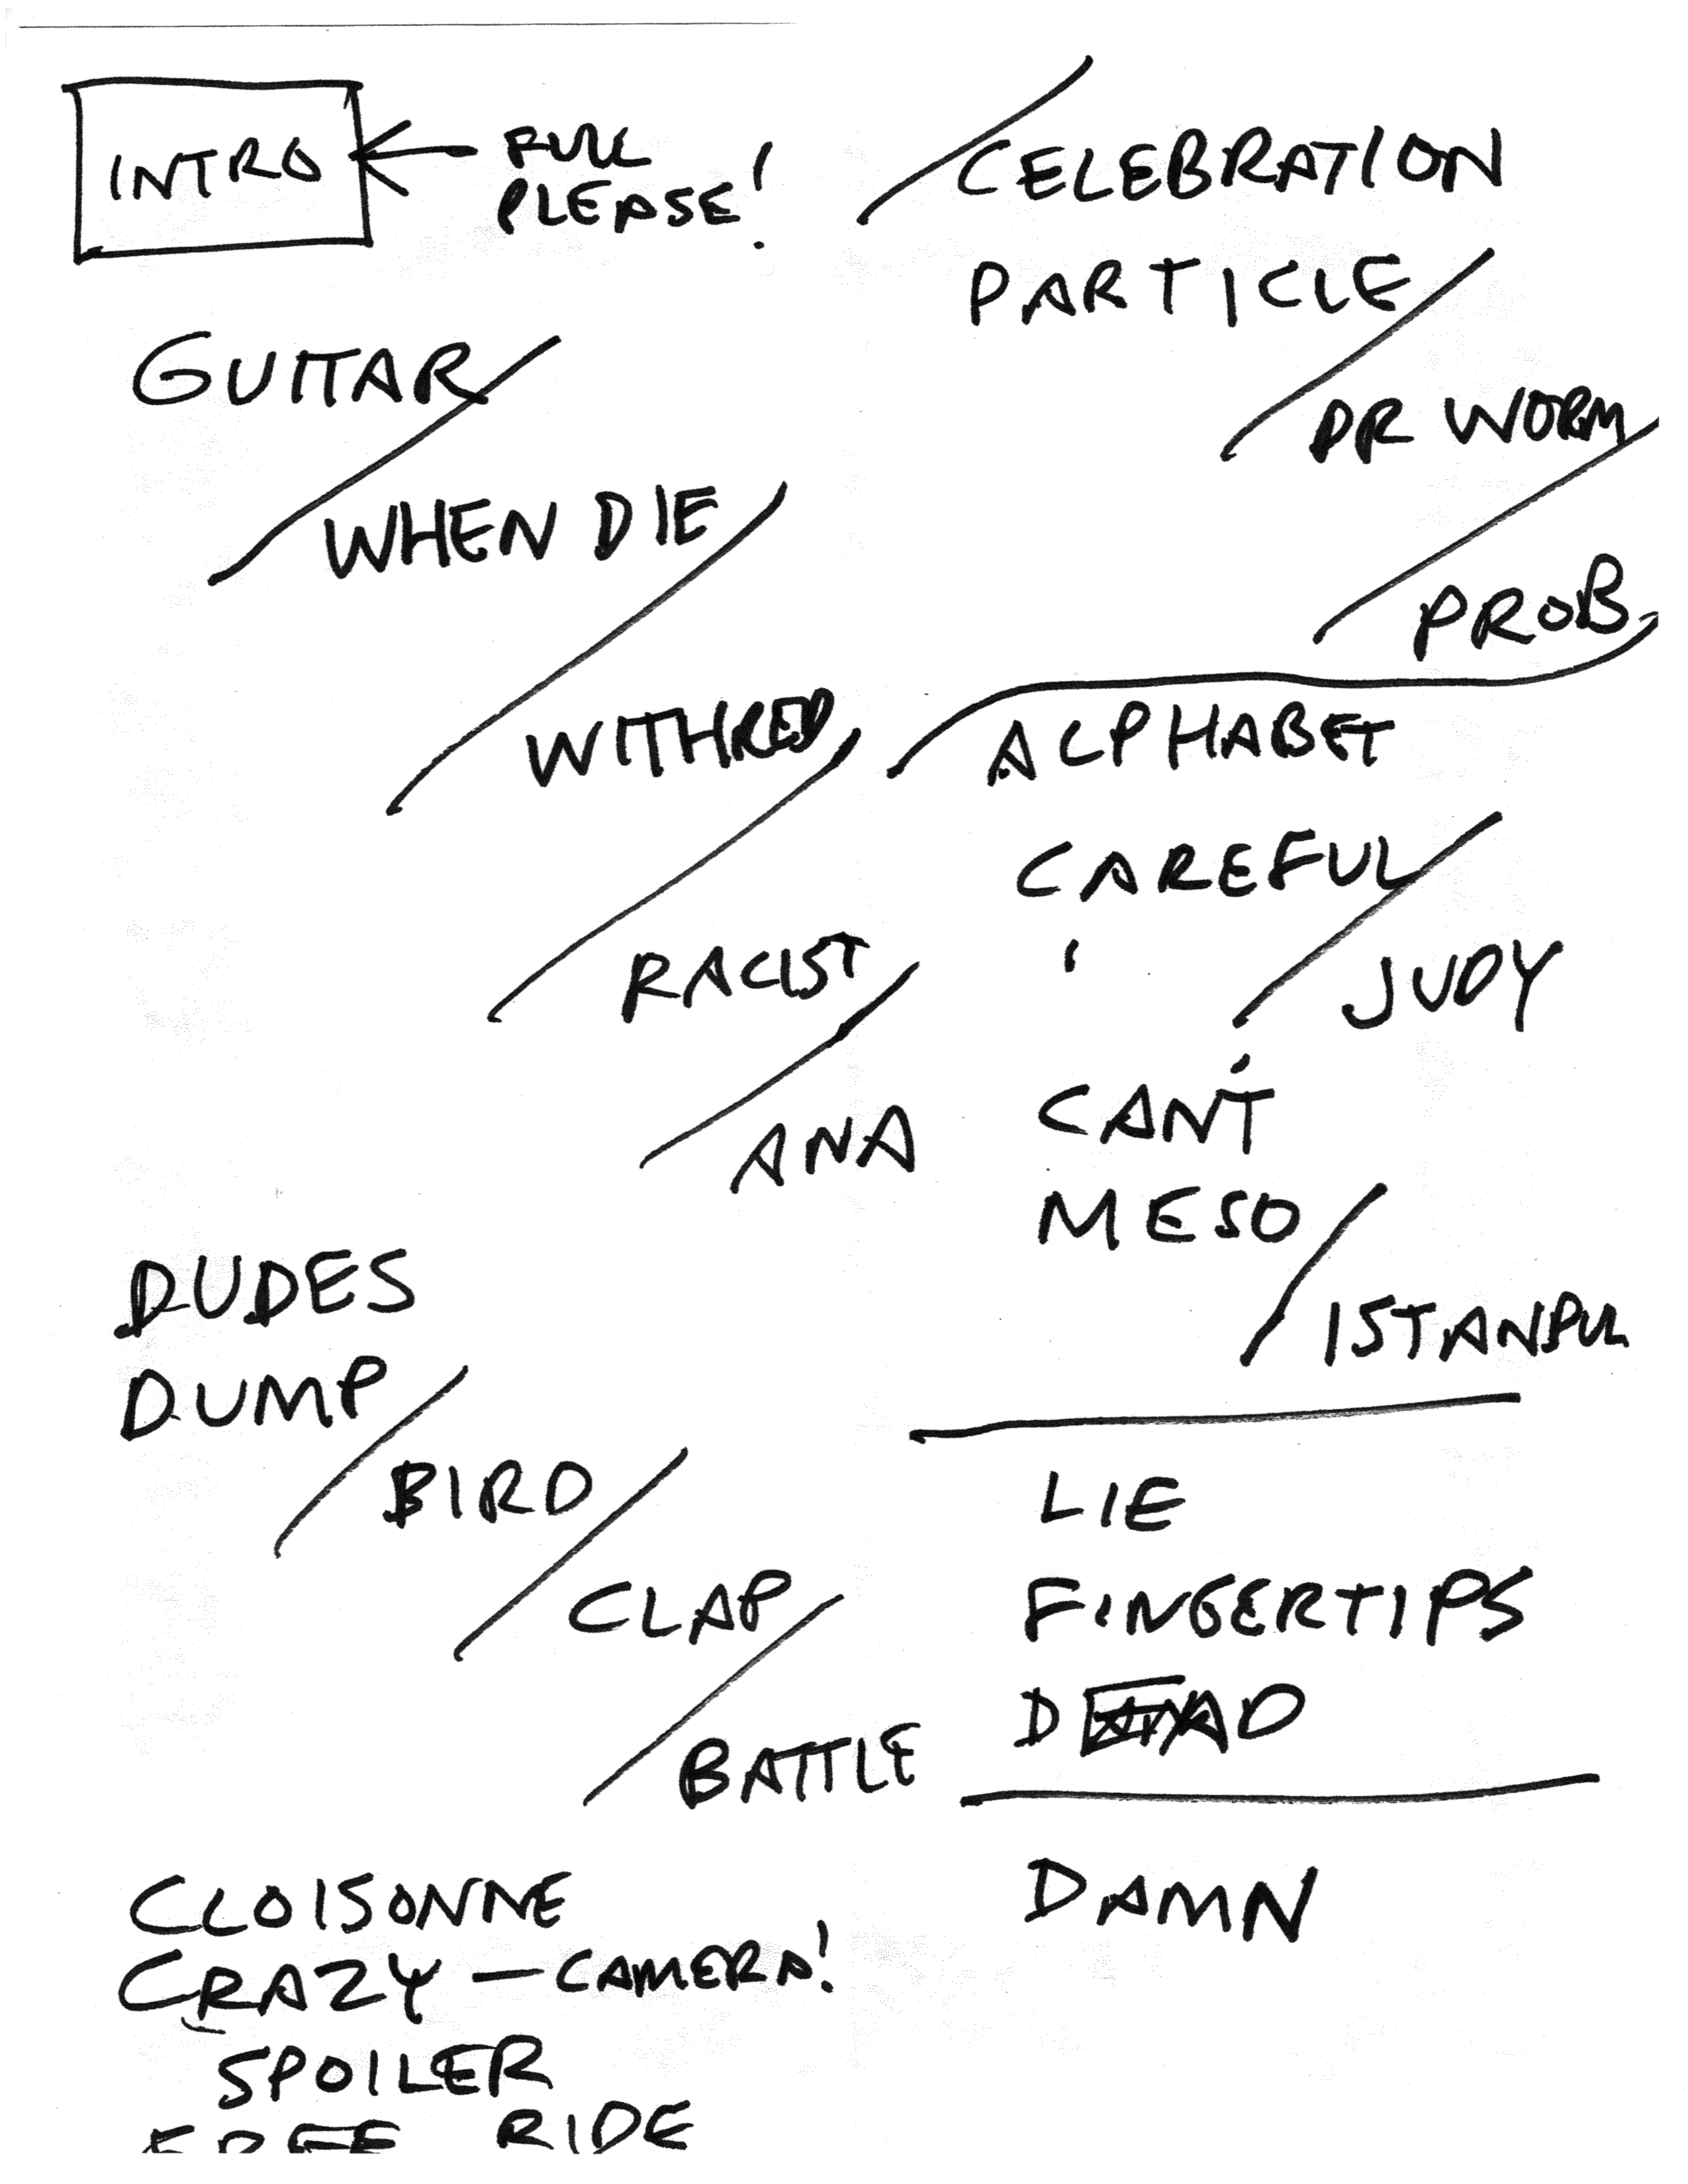 INTRO ← FULL
PLEASE!
GUITAR
WHEN DIE
WITHRED
RACIST
ANA
DUDES
DUMP
BIRD
CLAP
BATTLE
CLOISONNE
CRAZY — CAMERA!
SPOILER
FREE RIDE
CELEBRATION
PARTICLE
DR WORM
PROB.
ALPHABET
CAREFUL
JUDY
CAN'T
MESO
ISTANBUL
LIE
FINGERTIPS
DEAD
DAMN